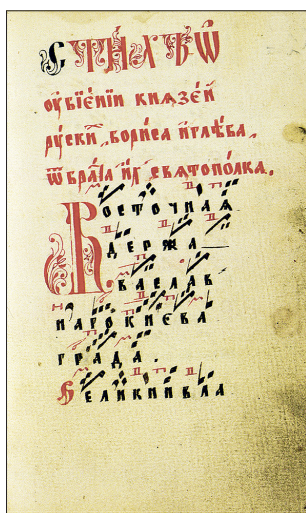 Сти́хъ ѡ҆
ѹ҆бїе́нїи кнѧзе́й
рꙋски́ⷯ, бори́са и҆ глѣ́ба,
ѿ бра́та и҆́ⷯ свѧтопо́лка.
Восточнаѧ
держа
ва слав
наго києва
града.
Великии вла